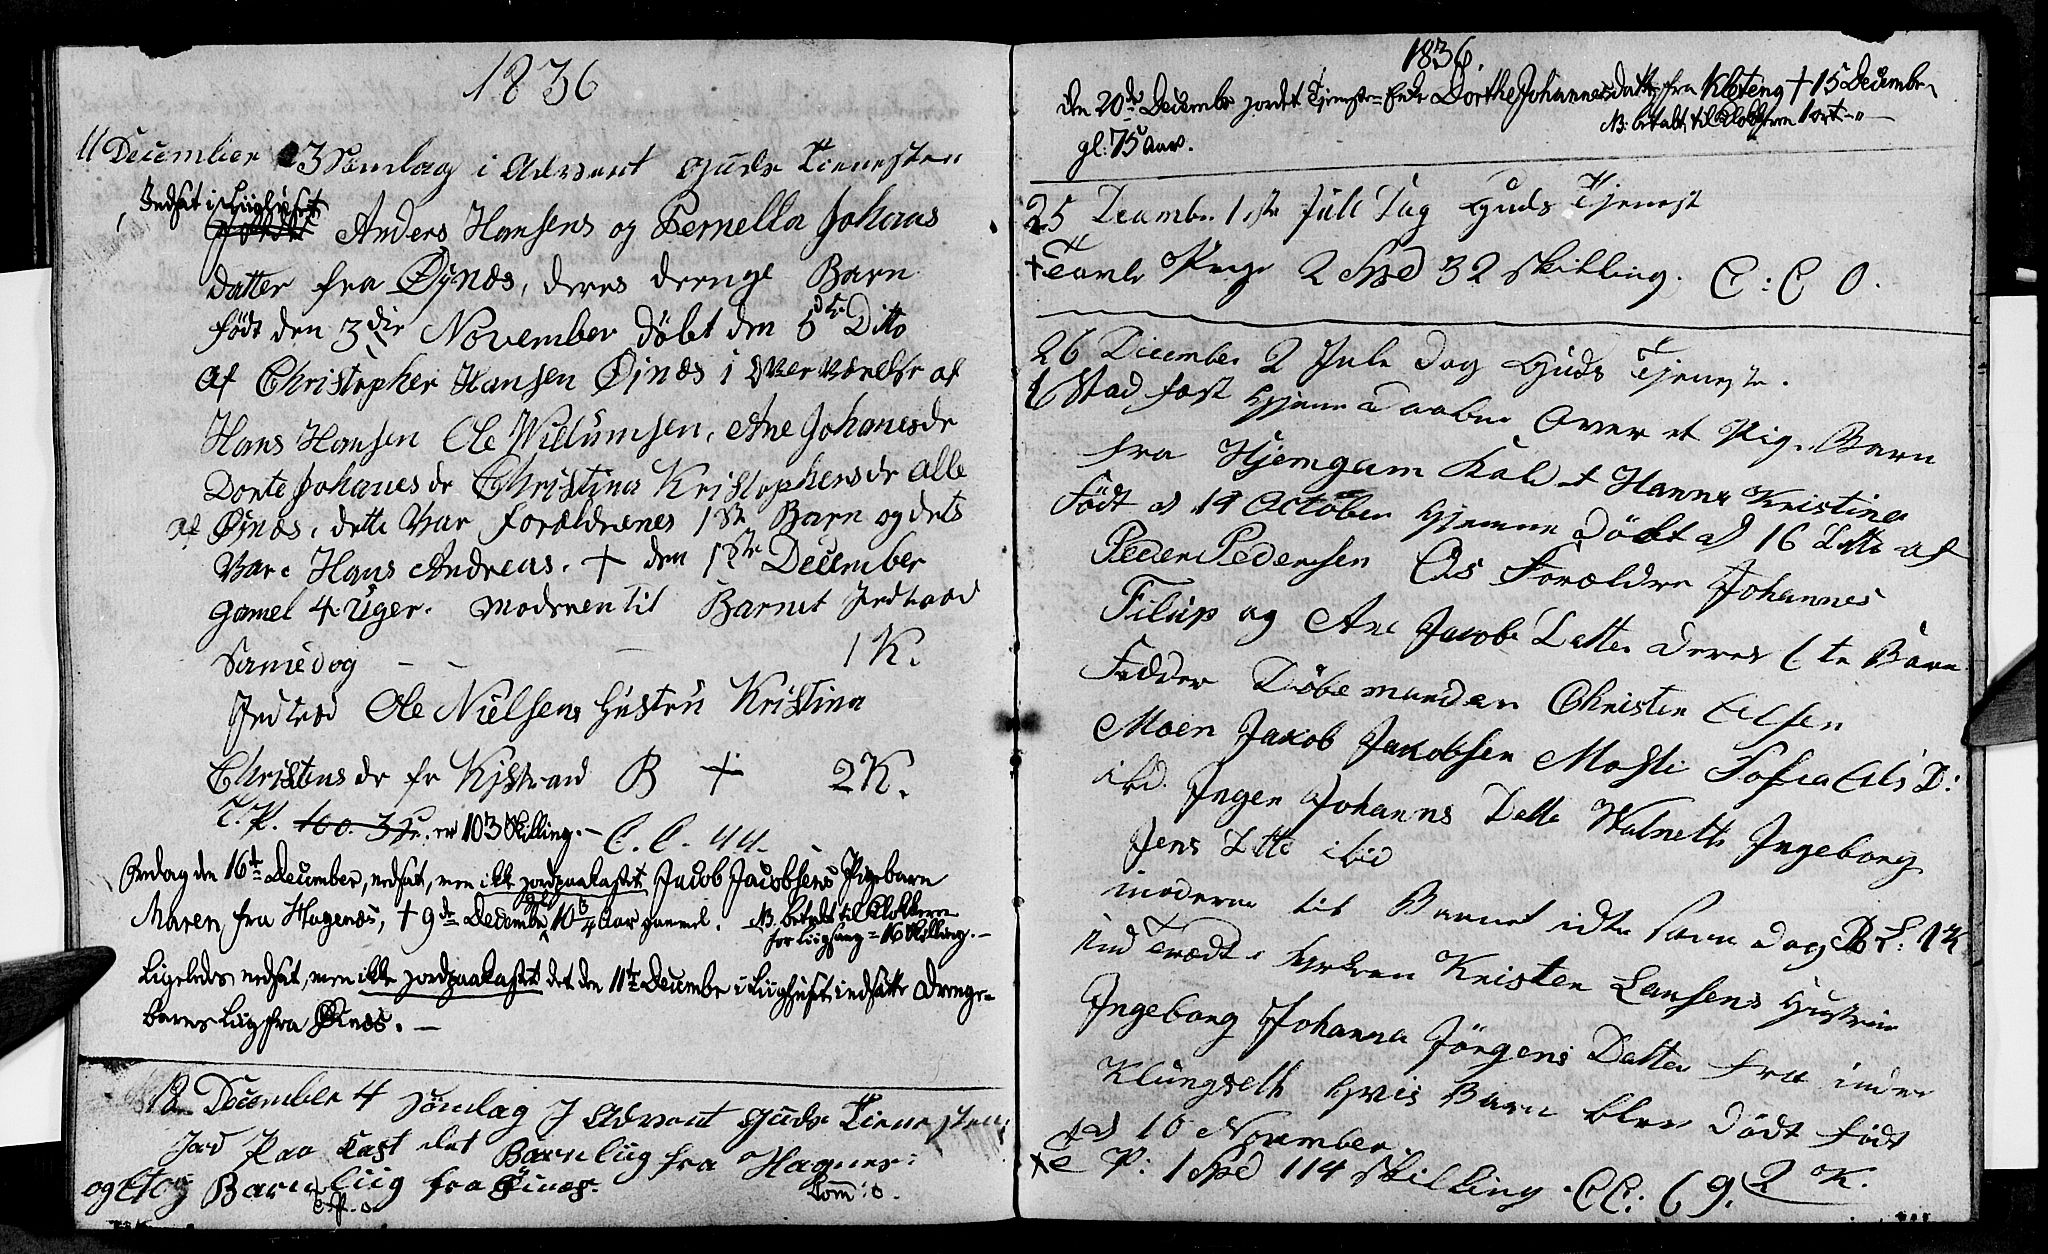 1836
11 December 3 Søndag i Advent Guds Tienesten
Indsat i Liighuset
Anders Hansens og Pernella Johans
datter fra Øynæs, deres drenge Barn
født den 3die November døbt den 5te Ditto
af Christopher Hansen Øjnæs i Overværelse af
Hans Hansen Ole Willumsen, Ane Johanesdr
Dorte Johanesdr Christina Kristophersdr alle
af Øinæs, dette var forældrenes 1st Barn og dets
Hans Andreas. + den 1ste December
gamel 4 Uger. Moderen til Barnet Indtraad
Samedag - - - 1 K.
Indtræd Ole Nielsens Hustru Kristina
Christensdr fr Kjstrand B + 2 K.
T. P. 100. 3 er 103 Skilling. - C. C. 44.
Fredag den 16de December, nedsat, men ikke jordpaakastet Jacob Jacobsens Pigebarn
Maren, fra Hagenæs, + 9de December 10 3/4 Aar gammel. NB. betalt til Klokkeren
for Liigsang = 16 Skilling. -
Ligeledes nedsat, men ikke jordpaakastet det den 11te December i Liighuset indsatte Drenge=
barns Liig fra Øinæs. -
18 December 4 Søndag I Advent Guds Tienesten
Jord Paa Kast det Barneliig fra Hagnes:
og Barneliig fra Øinæs.
T.P. o. Com: o.
1836.
den 20de December jordet Tjeneste= Enke Dorthe Johannesdatter fra Kløteng + 15 December
NB. betalt til Klokkeren 1 ort -"-
gl: 75 aar.
25 December 1ste Jule Dag Guds Tjenest
+ Tavle Penge 2 Spd 32 Skilling. C: C 0.
26 December 2 Jule Dag Guds Tjeneste.
Stad fæst Hjemme Daaben Over et Pige Barn
fra Hjemgam Kaldt Hanna Kristina
Født d 14 October Hjemme Døbt d 16 Ditto af
Peder Pedersen Forældre Johannes
Filip og Ane Jacobs Datter Deres 6te Barn
Fadder Døbemanden Christen Olsen
Moen Jakob Jakobsen Mosti Sofia Ols D:
ibd. Inger Johanns Datter Walnetts Ingeborg
Jens Datter ibid
moderen til Barnet idtr samme dag B. S: 1 K
Ind Trædt i Kirken Kristen Larsens Hustrue
Ingeborg Johanna Jörgens Datter fra inder
Klungseth Hvis Barn blev Dødt født
d 10 November 2 K.
+ T P: 1 Spd 114 Skilling. CC: 69.